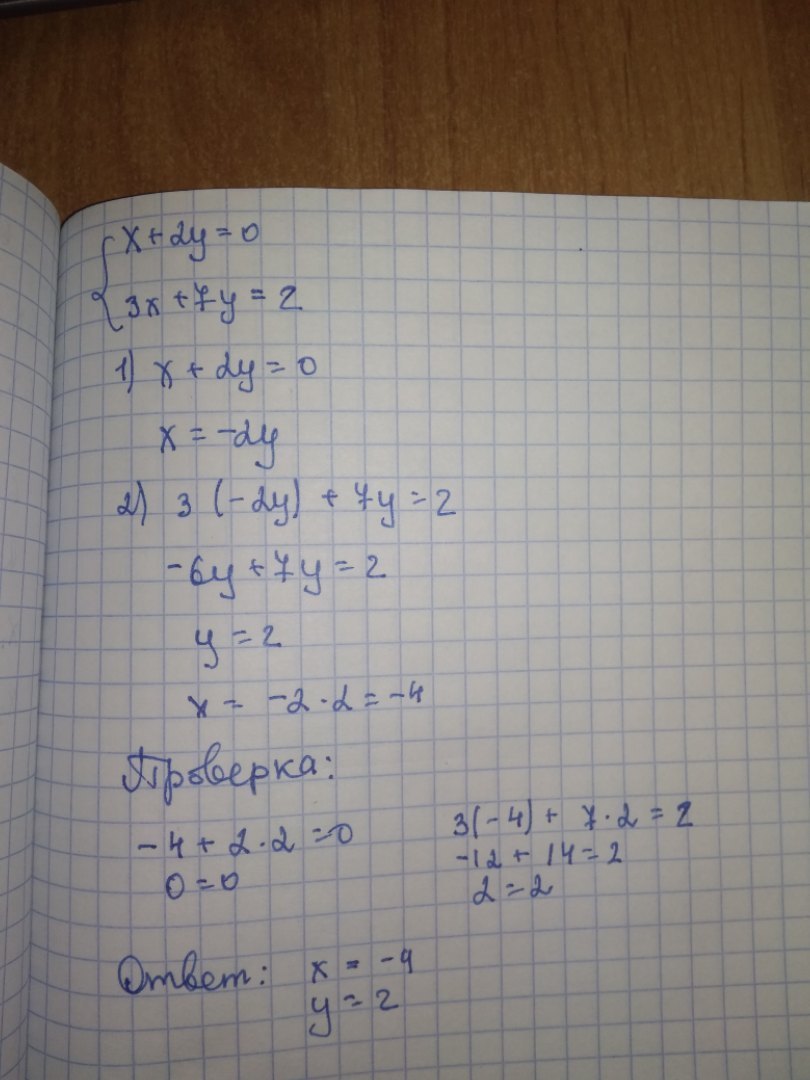 x+2y=0
3x+7y=2
1) x+2y=0
x=-2y
2) 3(-2y)+7y=2
-6y+7y=2
y=2
x=-2·2=-4
Проверка:
-4+2·2=0
0=0
3(-4)+7·2=2
-12+14=2
2=2
Ответ: x=-4
y=2